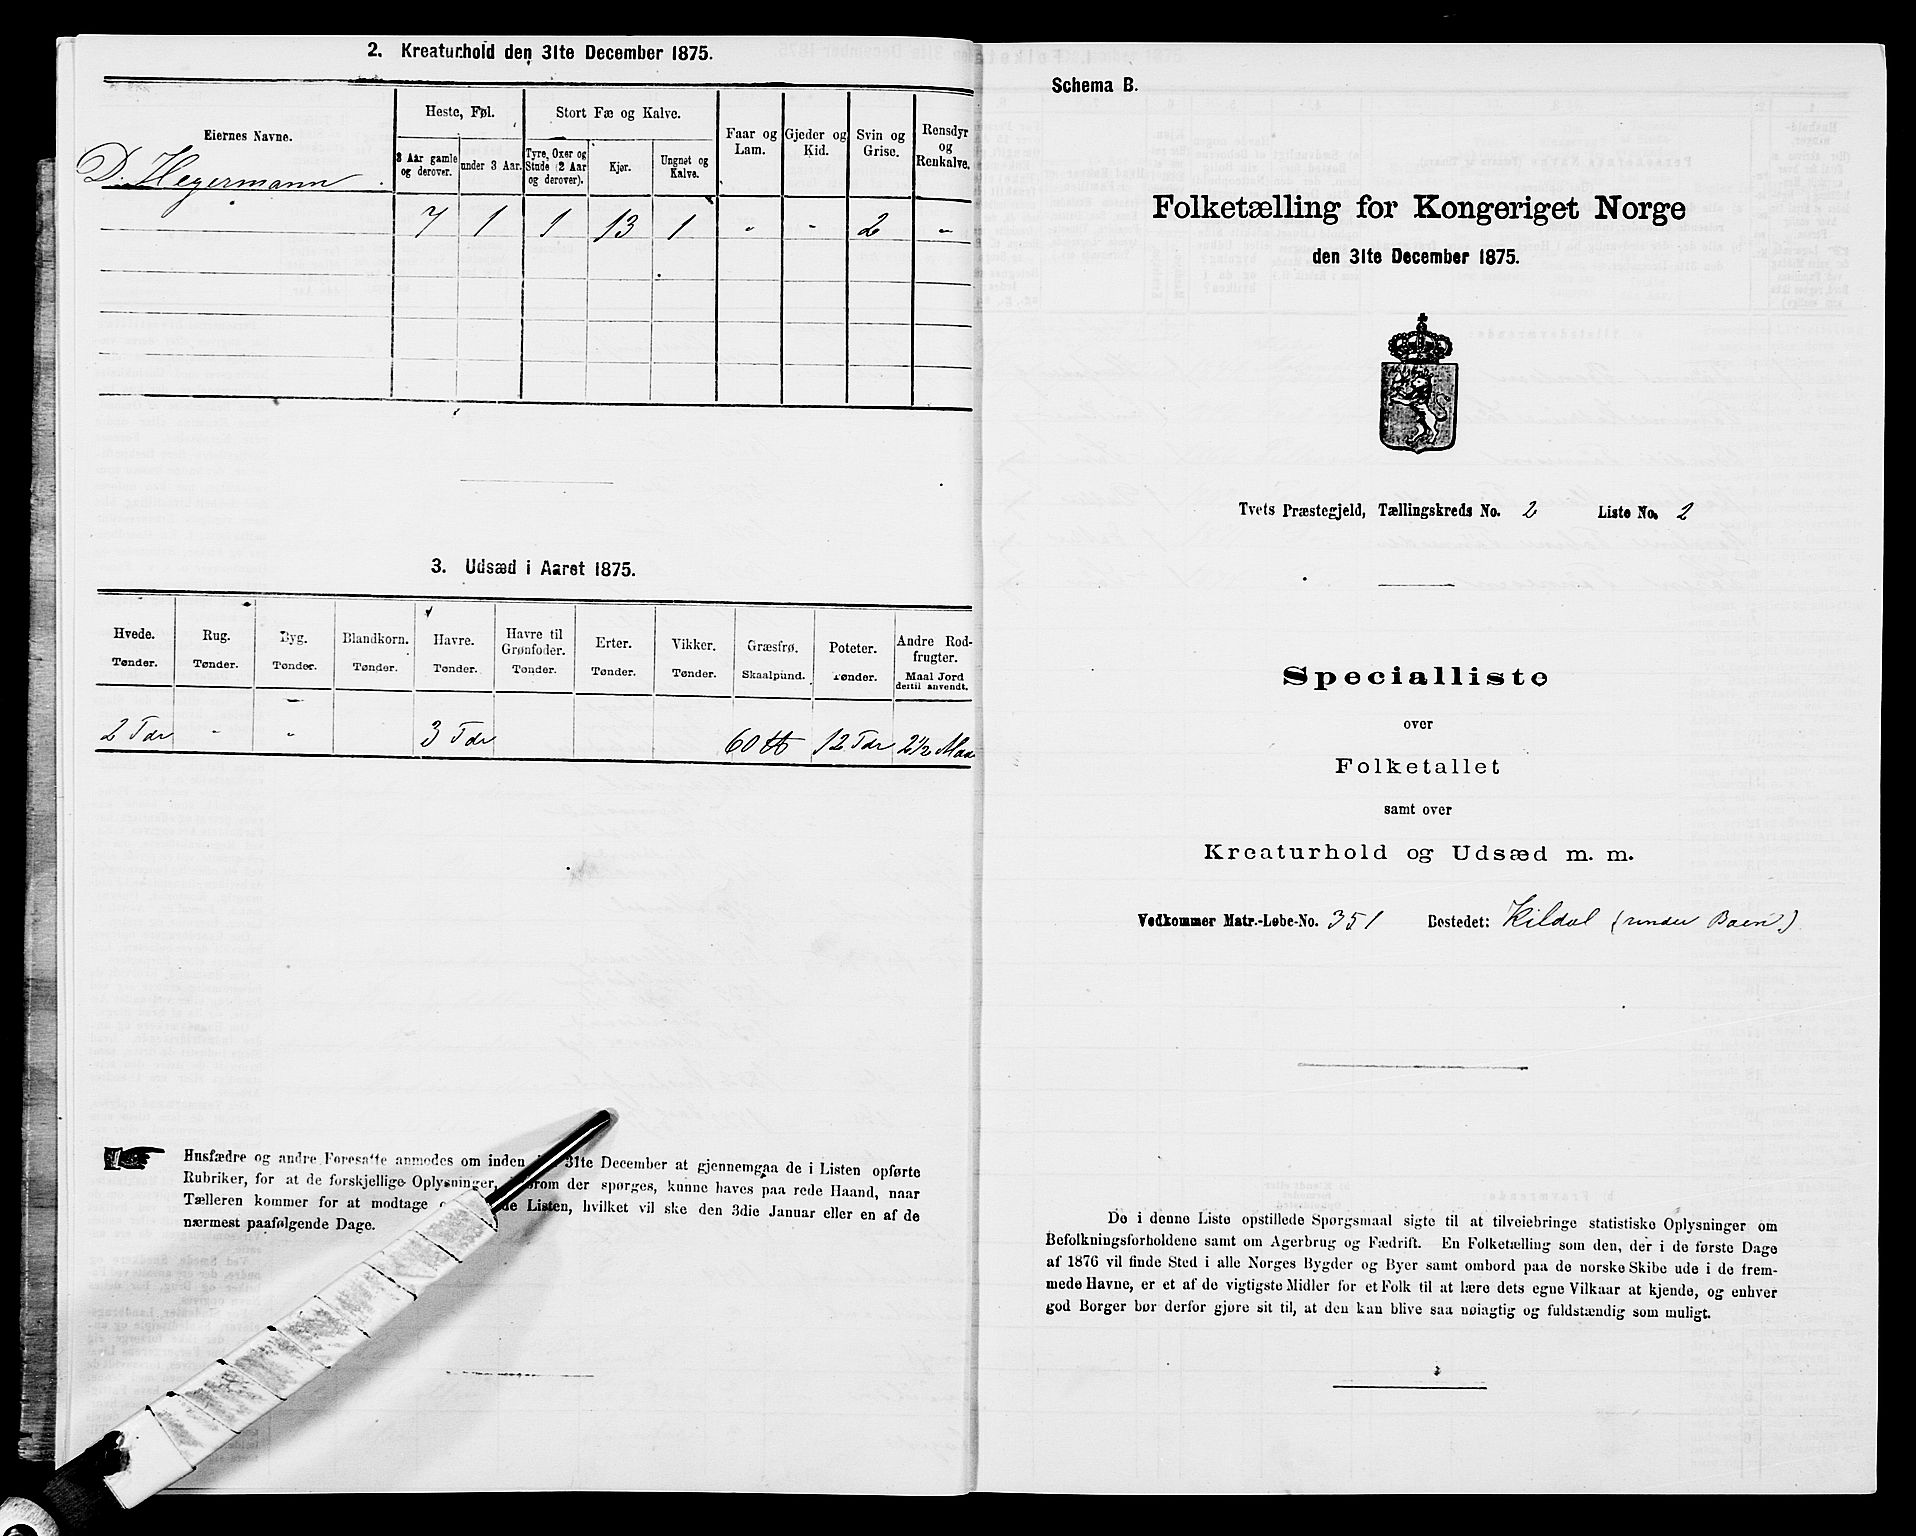 2. Kreaturhold den 31te December 1875.
Eiernes Navne.
Heste, Føl.
Stort Fæ og Kalve.
3 Aar gamle og derover.
under 3 Aar.
Tyre, Oxer og Stude (2 Aar og derover).
Kjør.
Ungnøt og Kalve.
Faar og Lam.
Gjeder og Kid.
Svin og Grise.
Rensdyr og Renkalve.
D. Hegermann
7 1 1 13 1 " " 2 "
3. Udsæd i Aaret 1875.
Hvede. Rug. Byg. Blandkorn. Havre. Havre til Grønfoder. Erter. Vikker. Græsfrø. Poteter. Andre Rodfrugter.
Tønder. Tønder. Tønder. Tønder. Tønder. Tønder. Tønder. Tønder. Skaalpund. Tønder. Maal Jord dertil anvendt.
2 Tdr " " 3 Tdr 60 ℔ 12 Tdr 2½ Maa
Husfædre og andre Foresatte anmodes om inden 31te December at gjennemgaa de i Listen opførte
Rubriker, for at de forskjellige Oplysninger, der spørges, kunne haves paa rede Haand, naar
Tælleren kommer for at modtage Listen, hvilket vil ske den 3die Januar eller en af de
nærmest paafølgende Dage.
Schema B.
Folketælling for Kongeriget Norge
den 31te December 1875.
Tvets Præstegjeld, Tællingskreds No. 2 Liste No. 2
Specialliste
over
Folketallet
samt over
Kreaturhold og Udsæd m. m.
Vedkommer Matr.-Løbe-No. 351 Bostedet: Kildal (under Boen.)
De i denne Liste opstillede Spørgsmaal sigte til at tilveiebringe statistiske Oplysninger om
Befolkningsforholdene samt om Agerbrug og Fædrift. En Folketælling som den, der i de første Dage
af 1876 vil finde Sted i alle Norges Bygder og Byer samt ombord paa de norske Skibe ude i de frem-
mede Havne, er et af de vigtigste Midler for et Folk til at lære dets egne Vilkaar at kjende, og enhver
god Borger bør derfor gjøre sit til, at den kan blive saa nøiagtig og fuldstændig som muligt.